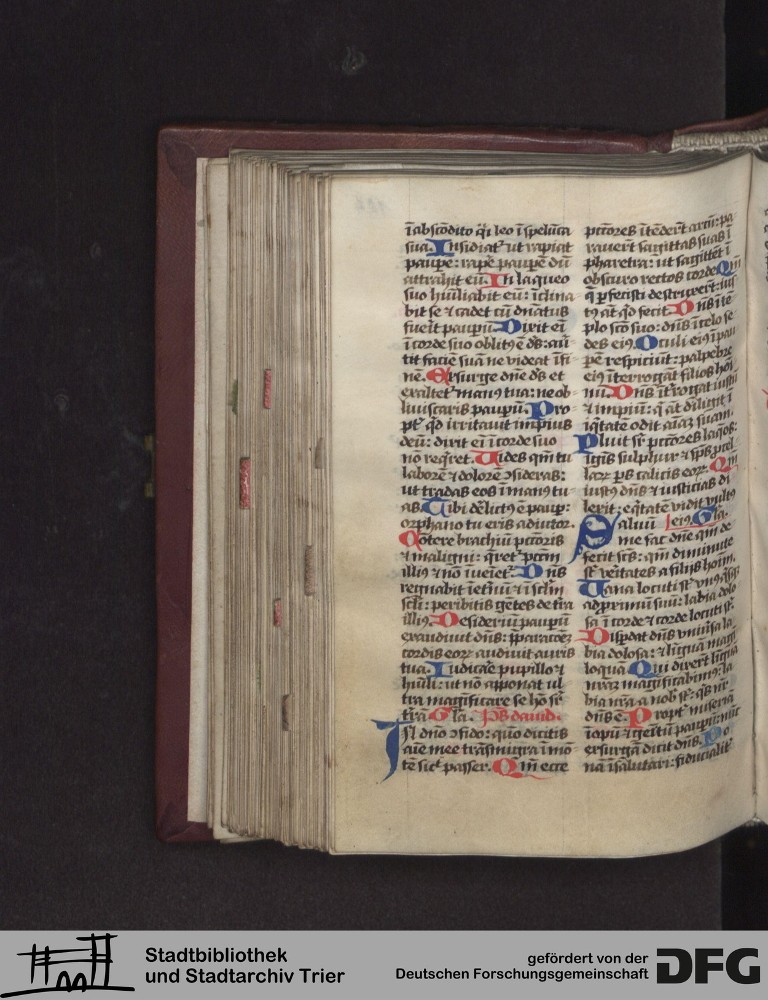 ī abscōdito q̄si leo ī spelūca
sua. Insidiat᷑ ut rapiat
paupē: rapē paupē dū
attrahit eū. In laqueo
suo hūiliabit eū: īclina
bit se ⁊ cadet cū dn̄atus
fuēit paupū. Dixit eī
ī corde suo oblitꝰ ē dš: au᷑
tit faciē suā ne videat ī fi
nē. Exsurge dn̄e dš et
exaltet᷑ manꝰ tua: ne ob
liuiscaris paupū. Pro
pt᷑ qd irritauit impius
deū: dixit eī ī corde suo
nō reqret. Uides qm̄ tu
laborē ⁊ dolorē ꝯsideras:
ut tradas eos ī manꝰ tu
as. Tibi delictꝰ ē paup:
orphano tu eris adiutor.
Cōtere brachiū pctōris
⁊ maligni: q̄ret᷑ pctm̄
illiꝰ ⁊ nō īueīet᷑. Dn̄s
regnabit īet᷑nū ⁊ ī sclm̄
scli: peribitis gētes de t᷑ra
illiꝰ. Desideriū paupū
exaudiuit dn̄s: p̄paratōēꝫ
cordis eoꝝ audiuit auris
tua. Iudicāe pupillo ⁊
hūili: ut nō apponat ul
tra magnificare se hō sr̄
t᷑rā. Gl̄a. Pš dauid.
In dn̄o ꝯfido: quō dicitis
aīe mee trāsmigra ī mō
tē sic᷑ passer. Qm̄ ecce
pctōres ītēder̄t arcū: pa
rauer̄t sagittas suas ī
pharetra: ut sagittēt ī
obscuro rectos corde. Qm̄
q̄ pfecisti destruxer̄t: ius
tꝰ aūt qd fecit. Dn̄s ī tē
plo scō suo: dn̄s ī celo se
des eiꝰ. Oculi eiꝰ ī pau
pē respiciūt: palpebre
eiꝰ īterrogāt filios hōi
nū. Dn̄s īt᷑rogat iustū
⁊ impiū: q̄ aūt diligit ī
iq̄tatē odit aīaꝫ suam.
Pluit sr̄ pctōres laq̄os:
ignis sulphur ⁊ sp̄s pcel
laꝝ ps calicis eoꝝ. Qm̄
iustꝰ dn̄s ⁊ iusticias di
lexit: eq̄tatē vidit vultꝰ
eiꝰ. Gl̄a.
Saluū
me fac dn̄e qm̄ de
fecit scš: qm̄ diminute
st̄ veritates a filijs hoīm.
Uana locuti st̄ vnꝰq̄sqꝫ
ad pximū suū: labia dolo
sa ī corde ⁊ corde locuti st̄.
Dispdat dn̄s vniūsa la
bia dolosa: ⁊ liguā magi
loquā. Qui dixer̄t ligua
nr̄az magnificabimꝰ: la
bia nr̄a a nob̄ st̄: q̄s nr̄
dn̄s ē. Propt᷑ miseriā
īopū ⁊ gemitū paupū: nūc
exsurgā dicit dn̄s. Po
nā ī salutari: fiducialit᷑
Stadtbibliothek
und Stadtarchiv Trier
gefördert von der
Deutschen Forschungsgemeinschaft
DFG